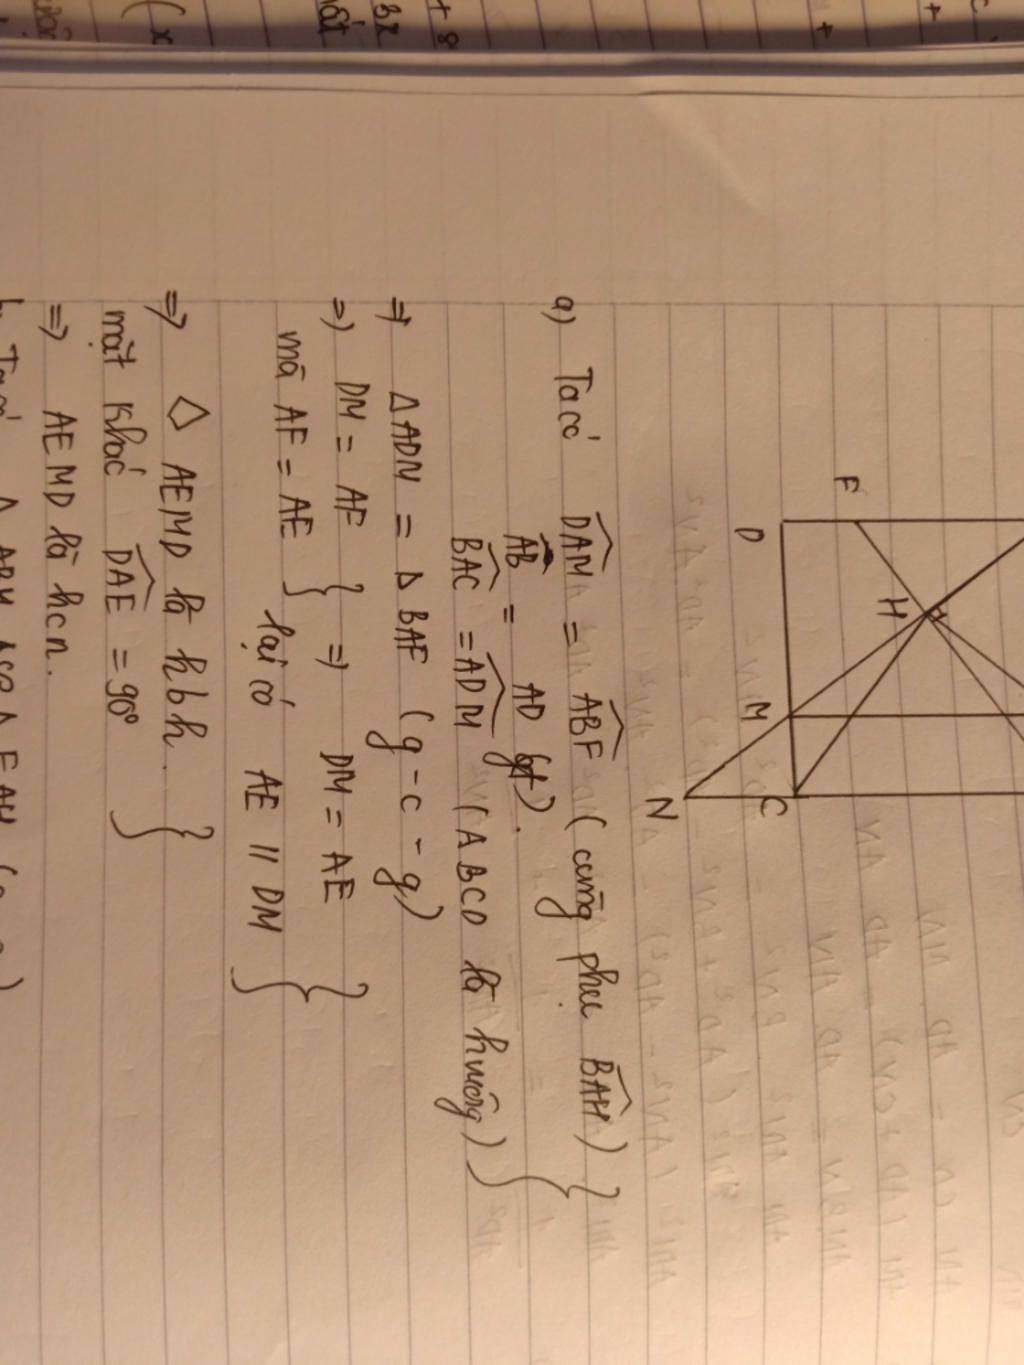 F
D
H
M
N
C
a) Ta có DAM = ABF (cùng phụ BAH)
AB = AD (gt).
BAC = ADM (ABCD là hvuông)
⇒ ΔADM = ΔBAF (g-c-g)
⇒ DM = AF
mà AF = AE } ⇒ DM = AE
lại có AE // DM }
⇒ ◇ AEMD là hbh.
mặt khác DAE = 90° }
⇒ AEMD là hcn.